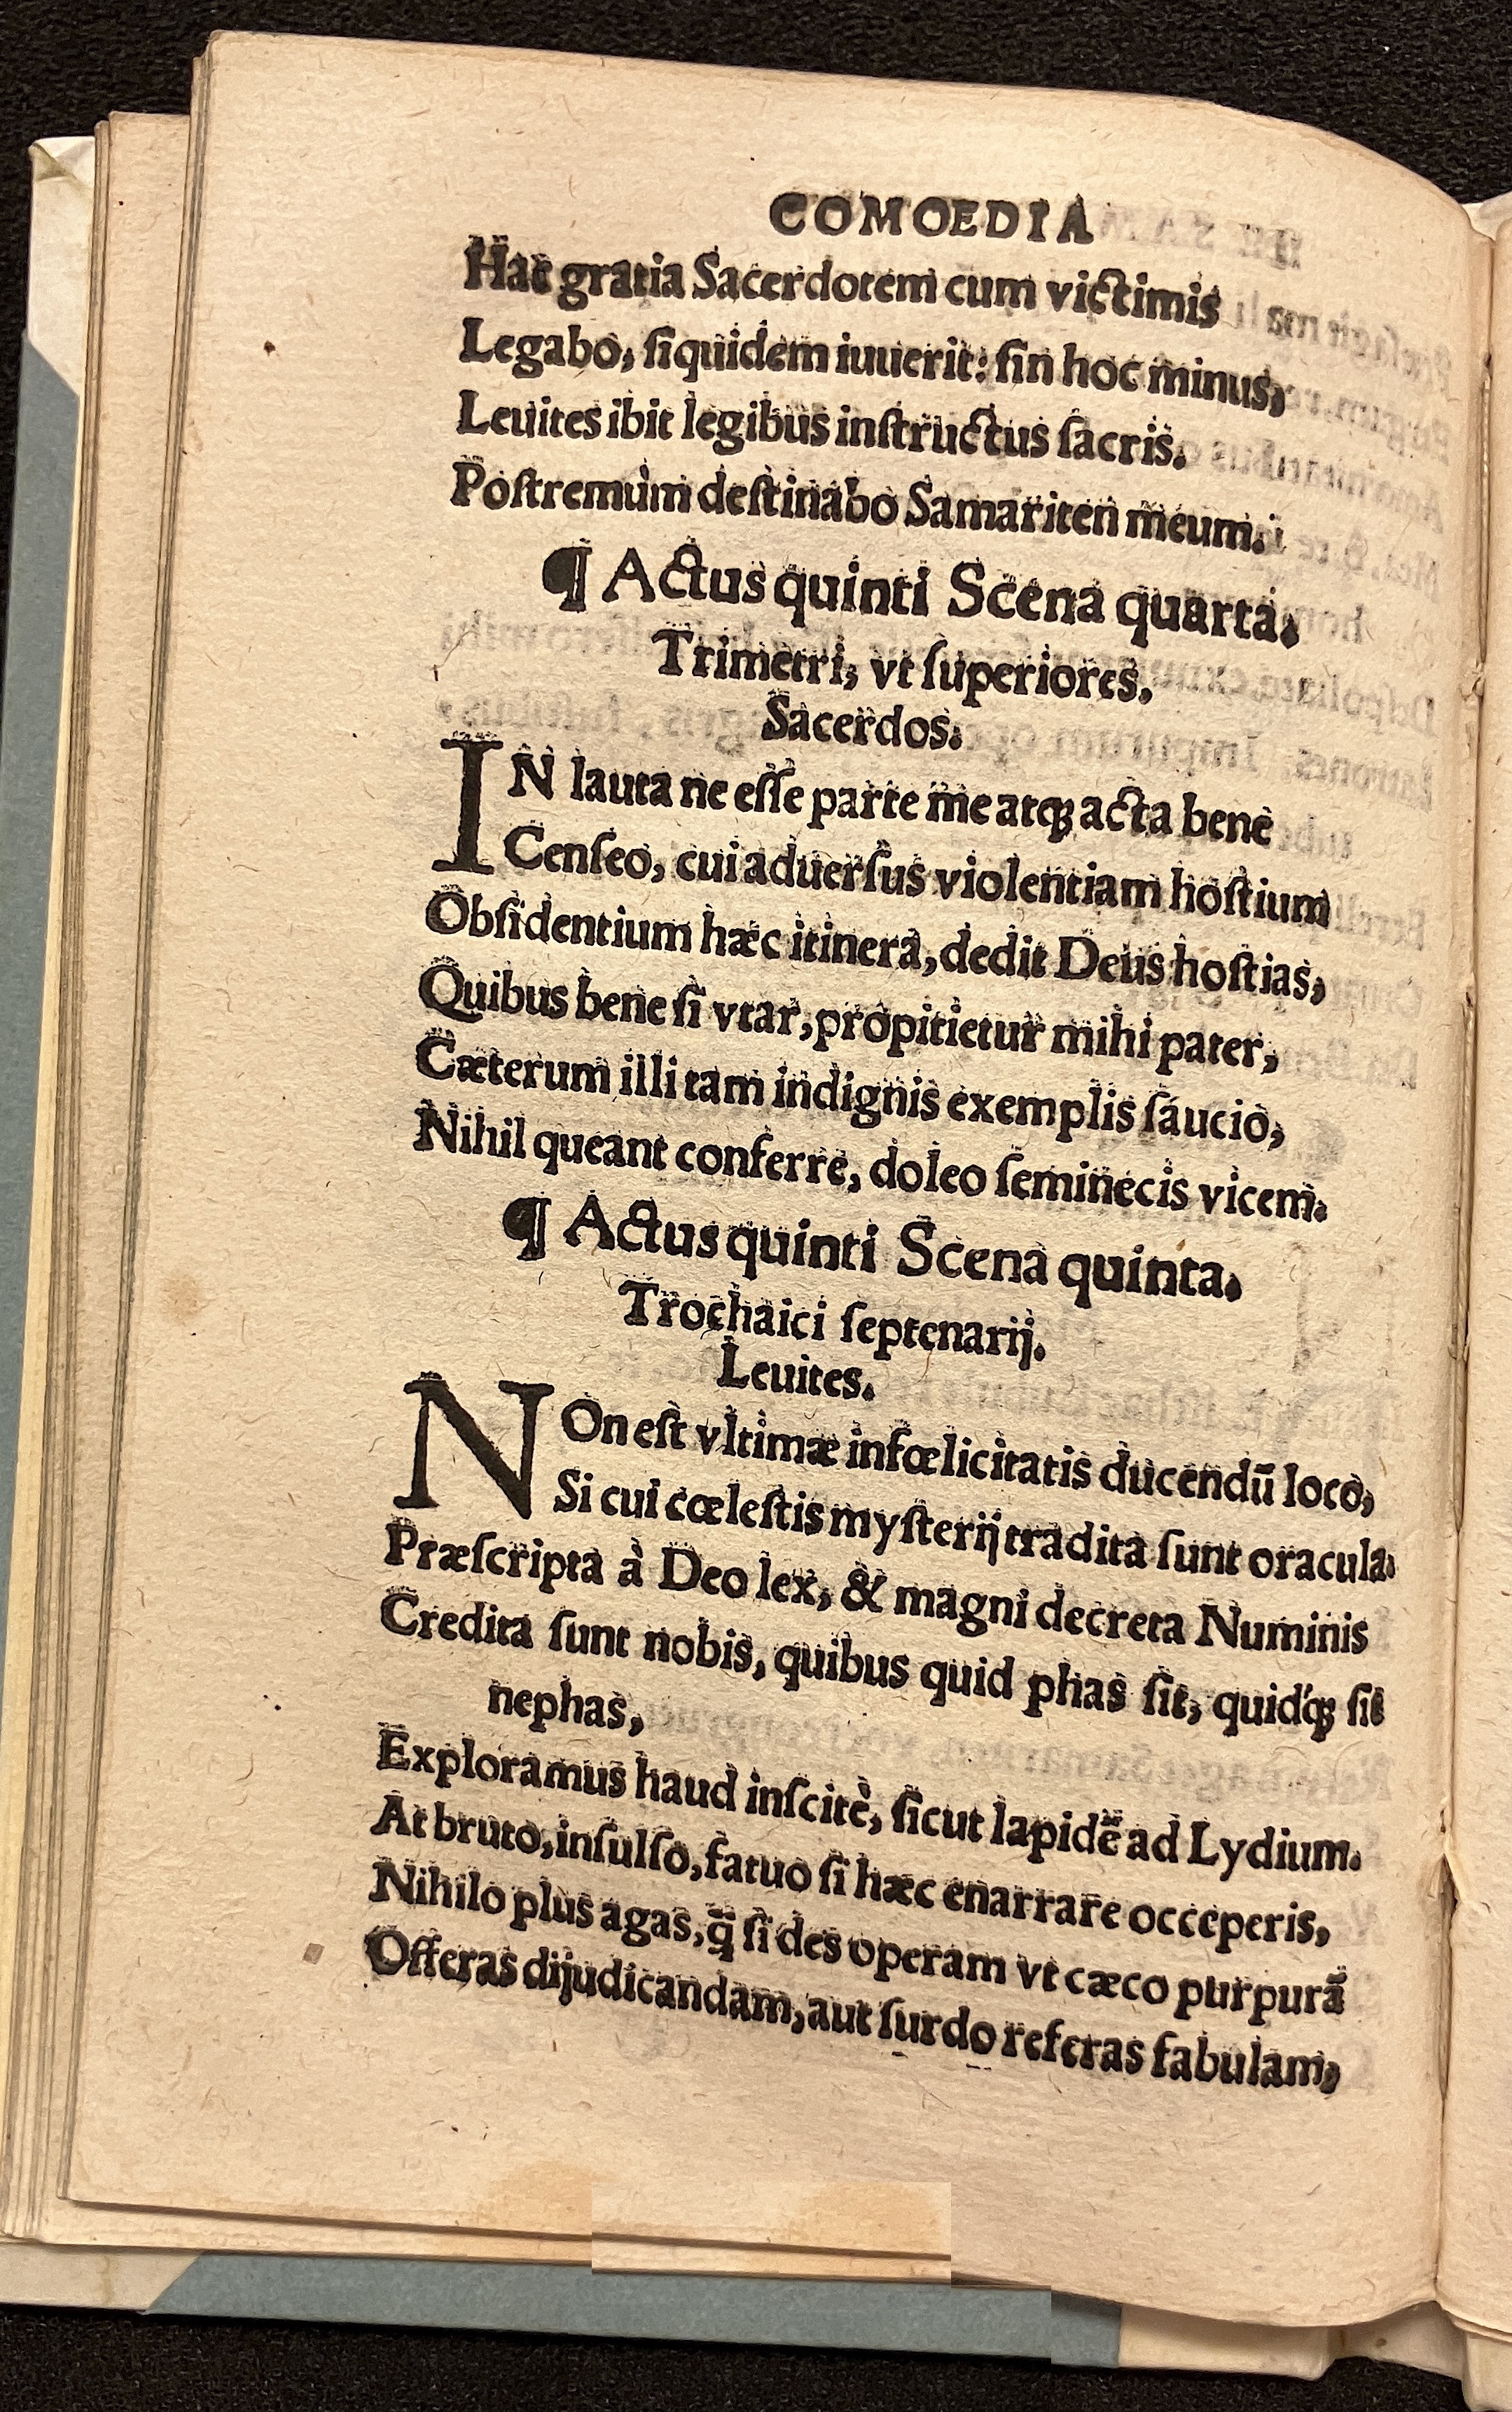 COMOEDIA
Hac gratia Sacerdotem cum victimis
Legabo, ſiquidem iuuerit: ſin hoc minus,
Leuites ibit legibus inſtructus ſacris.
Poſtremùm deſtinabo Samariten meum.
¶ Actus quinti Scena quarta.
Trimetri, vt ſuperiores.
Sacerdos.
IN lauta ne eſſe parte me atqꝫ acta bene
Cenſeo, cui aduerſus violentiam hoſtium
Obſidentium hæc itinera, dedit Deus hoſtias,
Quibus bene ſi vtar, propitietur mihi pater,
Cæterum illi tam indignis exemplis ſaucio,
Nihil queant conferre, doleo ſeminecis vicem.
¶ Actus quinti Scena quinta.
Trochaici ſeptenarij.
Leuites.
NOn eſt vltimæ infœlicitatis ducendū loco,
Si cui cœleſtis myſterij tradita ſunt oracula.
Præſcripta à Deo lex, & magni decreta Numinis
Credita ſunt nobis, quibus quid phas ſit, quidq́ꝫ ſit
nephas,
Exploramus haud inſcitè, ſicut lapidē ad Lydium.
At bruto, inſulſo, fatuo ſi hæc enarrare occeperis,
Nihilo plus agas, q̄ ſi des operam vt cæco purpurā
Offeras dijudicandam, aut ſurdo referas fabulam,